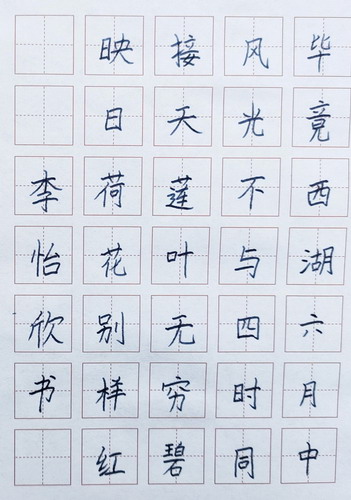 毕竟西湖六月中
风光不与四时同
接天莲叶无穷碧
映日荷花别样红
李怡欣书